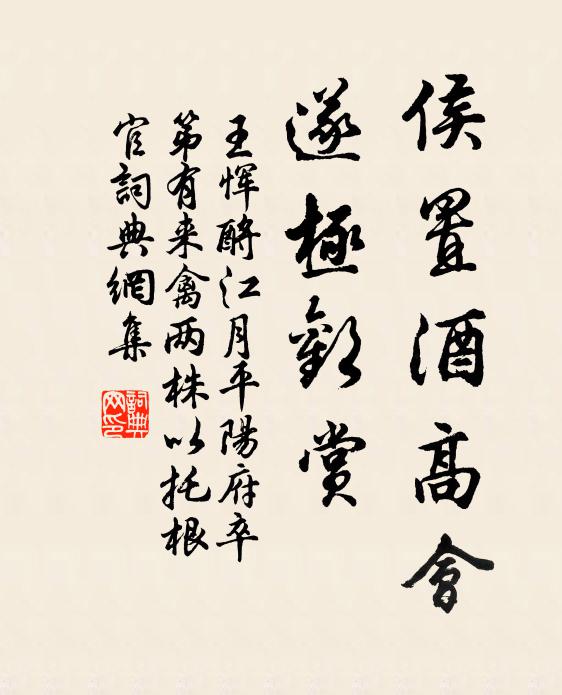 侯置酒高會
遂極歡賞
王恽酹江月平陽府卒
第有来禽两株以托根
官詞典網集
詞典
网印